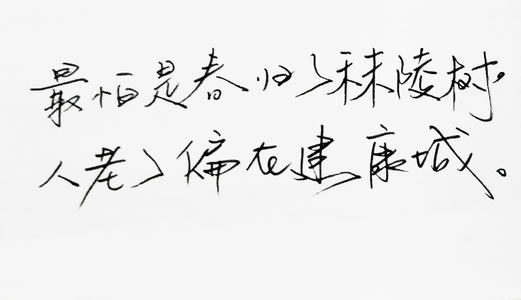 最怕是春归了秣陵树，
人老了偏在建康城。